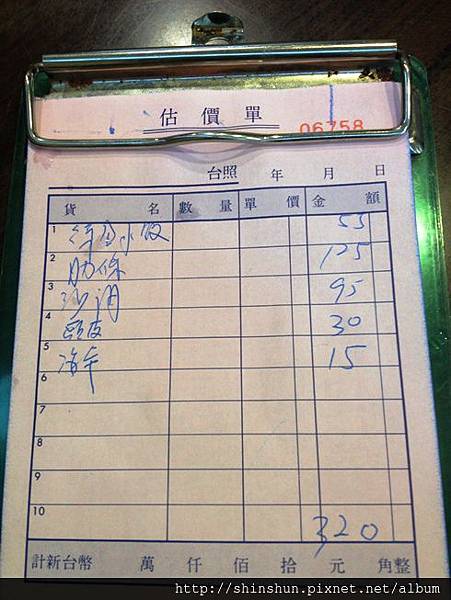 估價單
06758
台照 年 月 日
貨名 數量 單價 金額
1 水餃 55
2 肋條 125
3 95
4 頭皮 30
5 海帶 15
6
7
8
9
10 320
計新台幣 萬 仟 佰 拾 元 角整
http://shinshun.pixnet.net/album